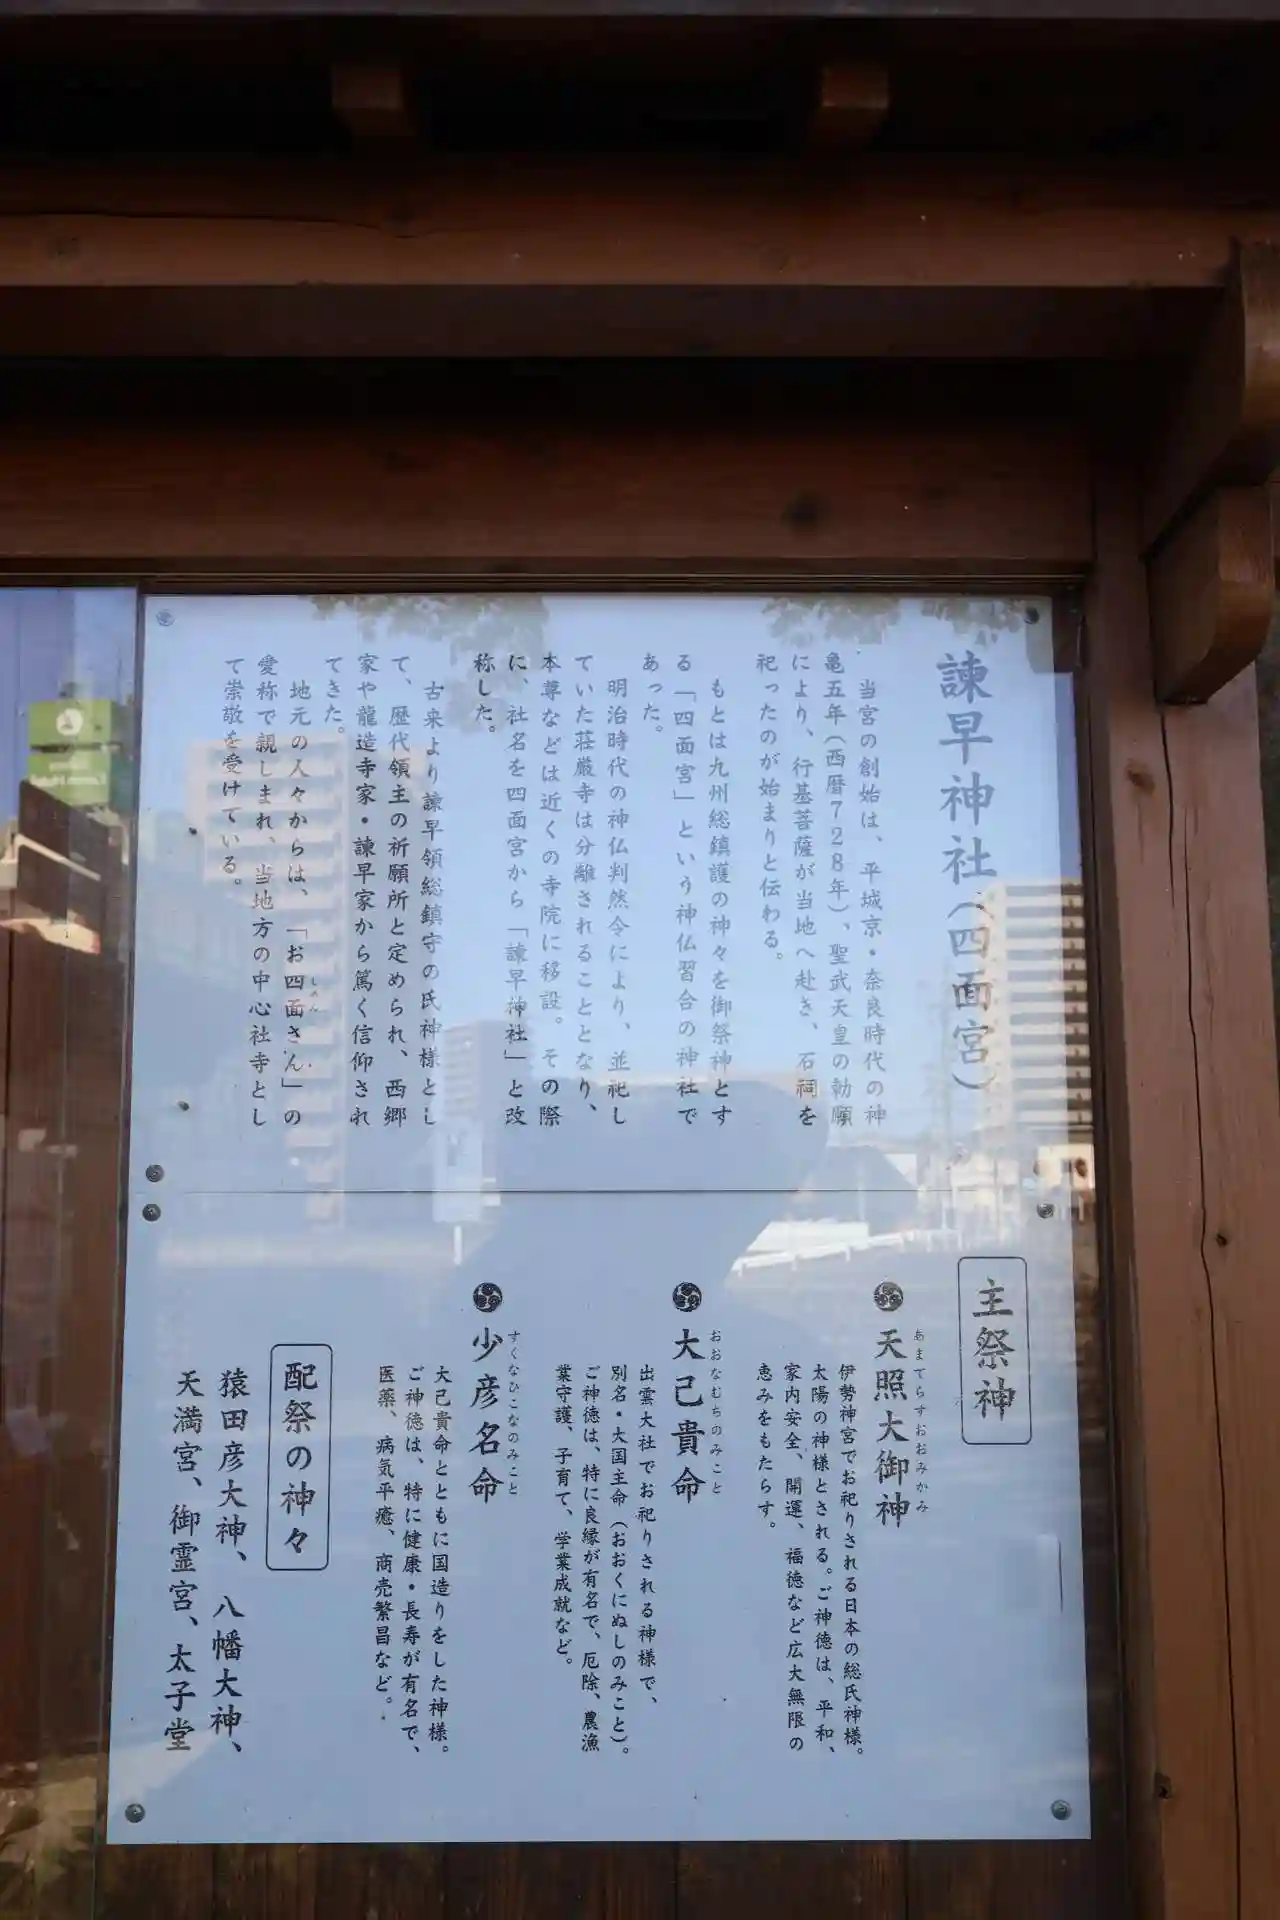 諫早神社(四面宮)
当宮の創始は、平城京・奈良時代の神
亀五年(西暦728年)、聖武天皇の勅願
により、行基菩薩が当地へ赴き、石祠を
祀ったのが始まりと伝わる。
もとは九州総鎮護の神々を御祭神とす
る「四面宮」という神仏習合の神社で
あった。
明治時代の神仏判然令により、並祀し
ていた荘厳寺は分離されることとなり、
本尊などは近くの寺院に移設。その際
に、社名を四面宮から「諫早神社」と改
称した。
古来より諫早領総鎮守の氏神様とし
て、歴代領主の祈願所と定められ、西郷
家や龍造寺家・諫早家から篤く信仰され
てきた。
地元の人々からは、「お四面さん」の
しめん
愛称で親しまれ、当地方の中心社寺とし
て崇敬を受けている。
主祭神
天照大御神
あまてらすおおみかみ
伊勢神宮でお祀りされる日本の総氏神様。
太陽の神様とされる。ご神徳は、平和、
家内安全、開運、福徳など広大無限の
恵みをもたらす。
大己貴命
おおなむちのみこと
出雲大社でお祀りされる神様で、
別名・大国主命(おおくにぬしのみこと)。
ご神徳は、特に良縁が有名で、厄除、農漁
業守護、子育て、学業成就など。
少彦名命
すくなひこなのみこと
大己貴命とともに国造りをした神様。
ご神徳は、特に健康・長寿が有名で、
医薬、病気平癒、商売繁昌など。
配祭の神々
猿田彦大神、八幡大神、
天満宮、御霊宮、太子堂